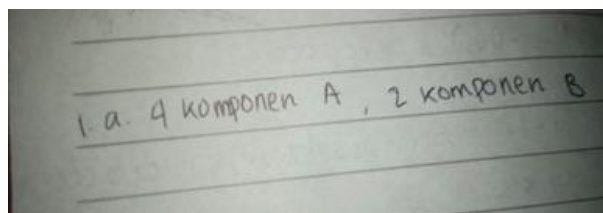 1. a. 4 komponen A , 2 komponen B